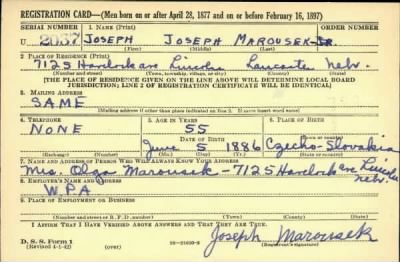 REGISTRATION CARD—(Men born on or after April 28, 1877 and on or before February 16, 1897)
SERIAL NUMBER 1. NAME (Print) ORDER NUMBER
U 2057 JOSEPH JOSEPH MAROUSEK-JR.
(First) (Middle) (Last)
2. PLACE OF RESIDENCE (Print)
7125 Havelock ave Lincoln Lancaster Nebr.
(Number and street) (Town, township, village, or city) (County) (State)
[THE PLACE OF RESIDENCE GIVEN ON THE LINE ABOVE WILL DETERMINE LOCAL BOARD
JURISDICTION; LINE 2 OF REGISTRATION CERTIFICATE WILL BE IDENTICAL]
3. MAILING ADDRESS
SAME
[Mailing address if other than place indicated on line 2. If same insert word same]
4. TELEPHONE 5. AGE IN YEARS 6. PLACE OF BIRTH
NONE 55
DATE OF BIRTH
June 5 1886 Czecho-Slovakia
(Exchange) (Number) (Mo.) (Day) (Yr.) (State or country)
7. NAME AND ADDRESS OF PERSON WHO WILL ALWAYS KNOW YOUR ADDRESS
Mrs. Olga Marousek - 7125 Havelock ave Lincoln Nebr.
8. EMPLOYER'S NAME AND ADDRESS
W.P.A
9. PLACE OF EMPLOYMENT OR BUSINESS
(Number and street or R. F. D. number) (Town) (County) (State)
I AFFIRM THAT I HAVE VERIFIED ABOVE ANSWERS AND THAT THEY ARE TRUE.
D. S. S. Form 1
(Revised 4-1-42) (over) Joseph Marousek
(Registrant's signature)